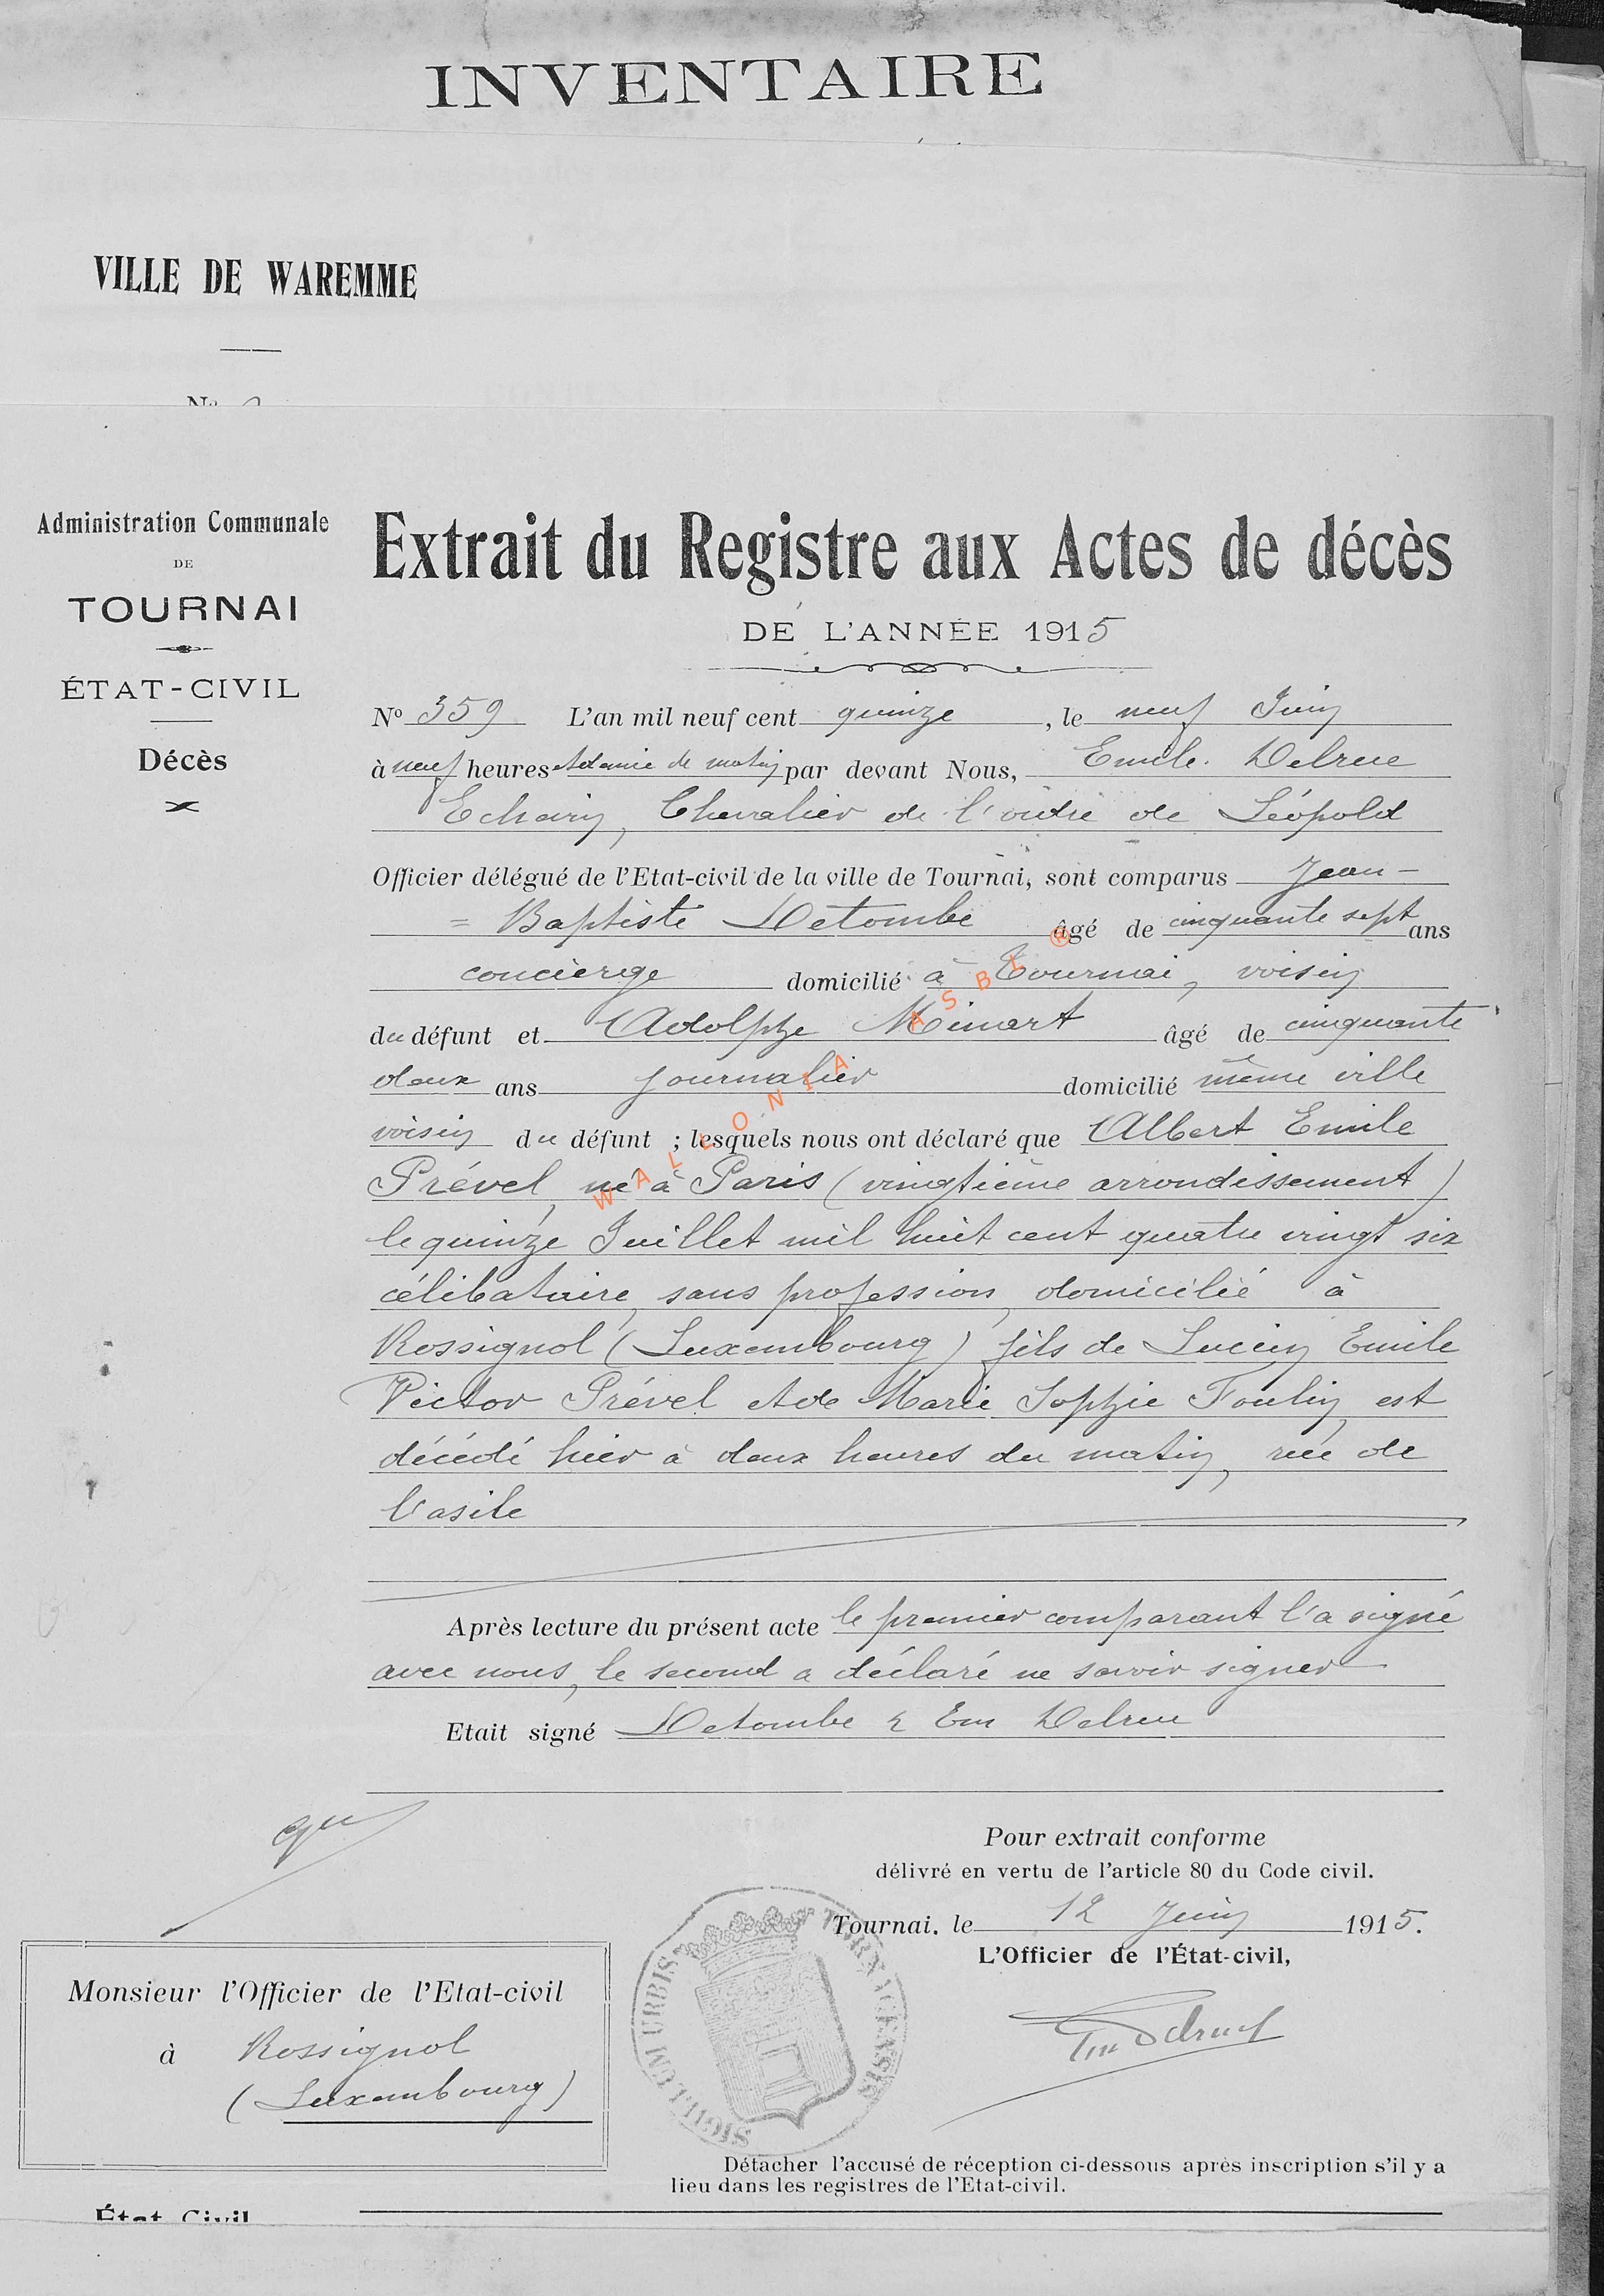 INVENTAIRE
VILLE DE WAREMME
No
Administration Communale
DE
TOURNAI
ÉTAT-CIVIL
Décès
Extrait du Registre aux Actes de décès
DE L'ANNÉE 1915
No 359 L'an mil neuf cent quinze, le neuf Juin
à neuf heures et demie du matin par devant Nous, Emile Delrue
Echevin, Chevalier de l'ordre de Léopold
Officier délégué de l'Etat-civil de la ville de Tournai, sont comparus Jean-
= Baptiste Detombe âgé de cinquante sept ans
concierge domicilié à Tournai, voisin
du défunt et Adolphe Minart âgé de cinquante
deux ans journalier domicilié même ville
voisin du défunt ; lesquels nous ont déclaré que Albert Emile
Prével, né à Paris (vingtième arrondissement)
le quinze Juillet mil huit cent quatre vingt six
célibataire, sans profession, domicilié à
Rossignol (Luxembourg) fils de Lucien Emile
Victor Prével et de Marie Sophie Foulin, est
décédé hier à deux heures du matin, rue de
l'asile
Après lecture du présent acte le premier comparant l'a signé
avec nous, le second a déclaré ne savoir signer
Etait signé Detombe & Em Delrue
Pour extrait conforme
délivré en vertu de l'article 80 du Code civil.
Tournai, le 12 Juin 1915.
L'Officier de l'État-civil,
Em Delrue
Monsieur l'Officier de l'Etat-civil
à Rossignol
(Luxembourg)
SIGILLUM URBIS TORNACENSIS
Détacher l'accusé de réception ci-dessous après inscription s'il y a
lieu dans les registres de l'Etat-civil.
État Civil
WALLONIA ASBL ®